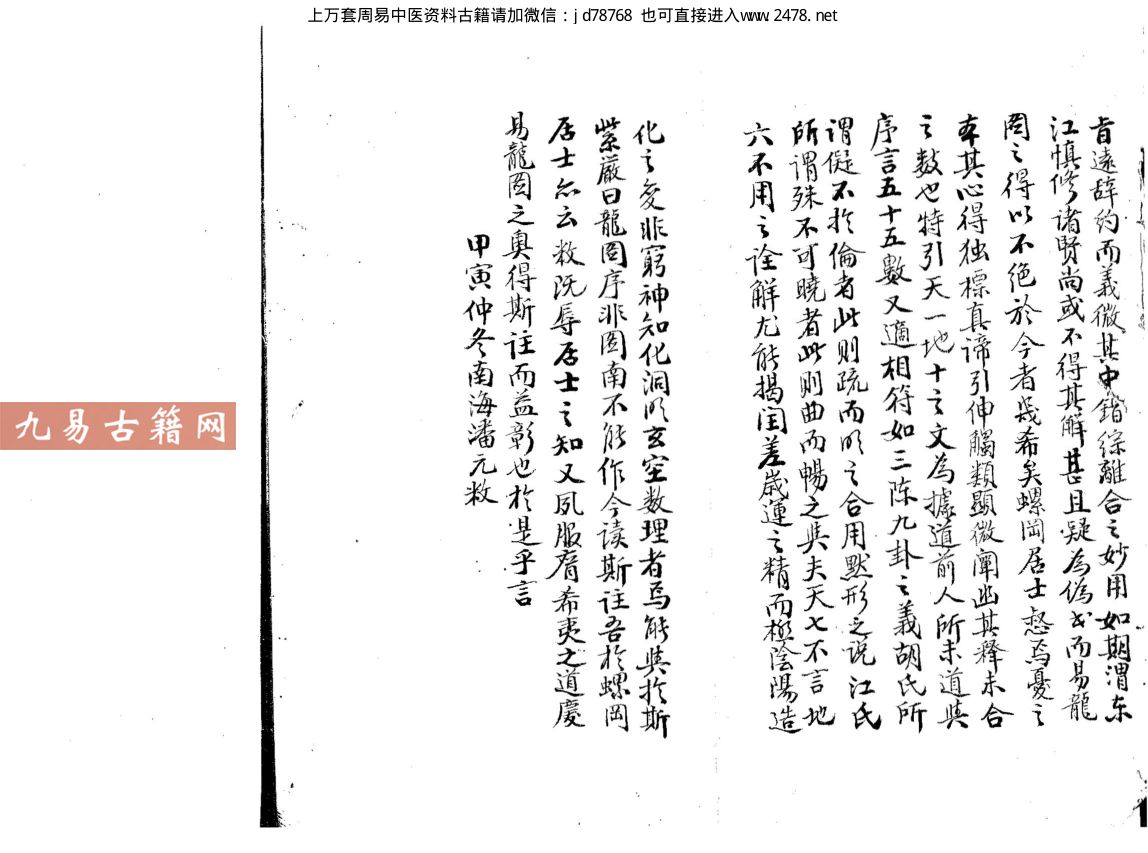 上万套周易中医资料古籍请加微信：jd78768 也可直接进入www.2478.net
旨遠辞约而義微其中錯综離合之妙用如期渭东
江慎修诸賢尚或不得其解甚且疑為偽书而易龍
圖之得以不绝於今者幾希矣螺岡居士惄焉憂之
本其心得独標真谛引伸觸類顯微闡幽其釋未合
之数也特引天一地十之文為據道前人所未道與
序言五十五數又適相符如三陈九卦之義胡氏所
謂儗不於倫者此则疏而明之合用黙形之说江氏
所谓殊不可曉者此则曲而暢之與夫天七不言地
六不用之诠解尤能揭闰差歲運之精而極陰陽造
化之变非窮神知化洞明玄空数理者焉能與於斯
紫巌曰龍圖序非圖南不能作今读斯註吾於螺岡
居士亦云敉既辱居士之知又夙服膺希夷之道慶
易龍圖之奥得斯註而益彰也於是乎言
甲寅仲冬南海潘元敉
九易古籍网